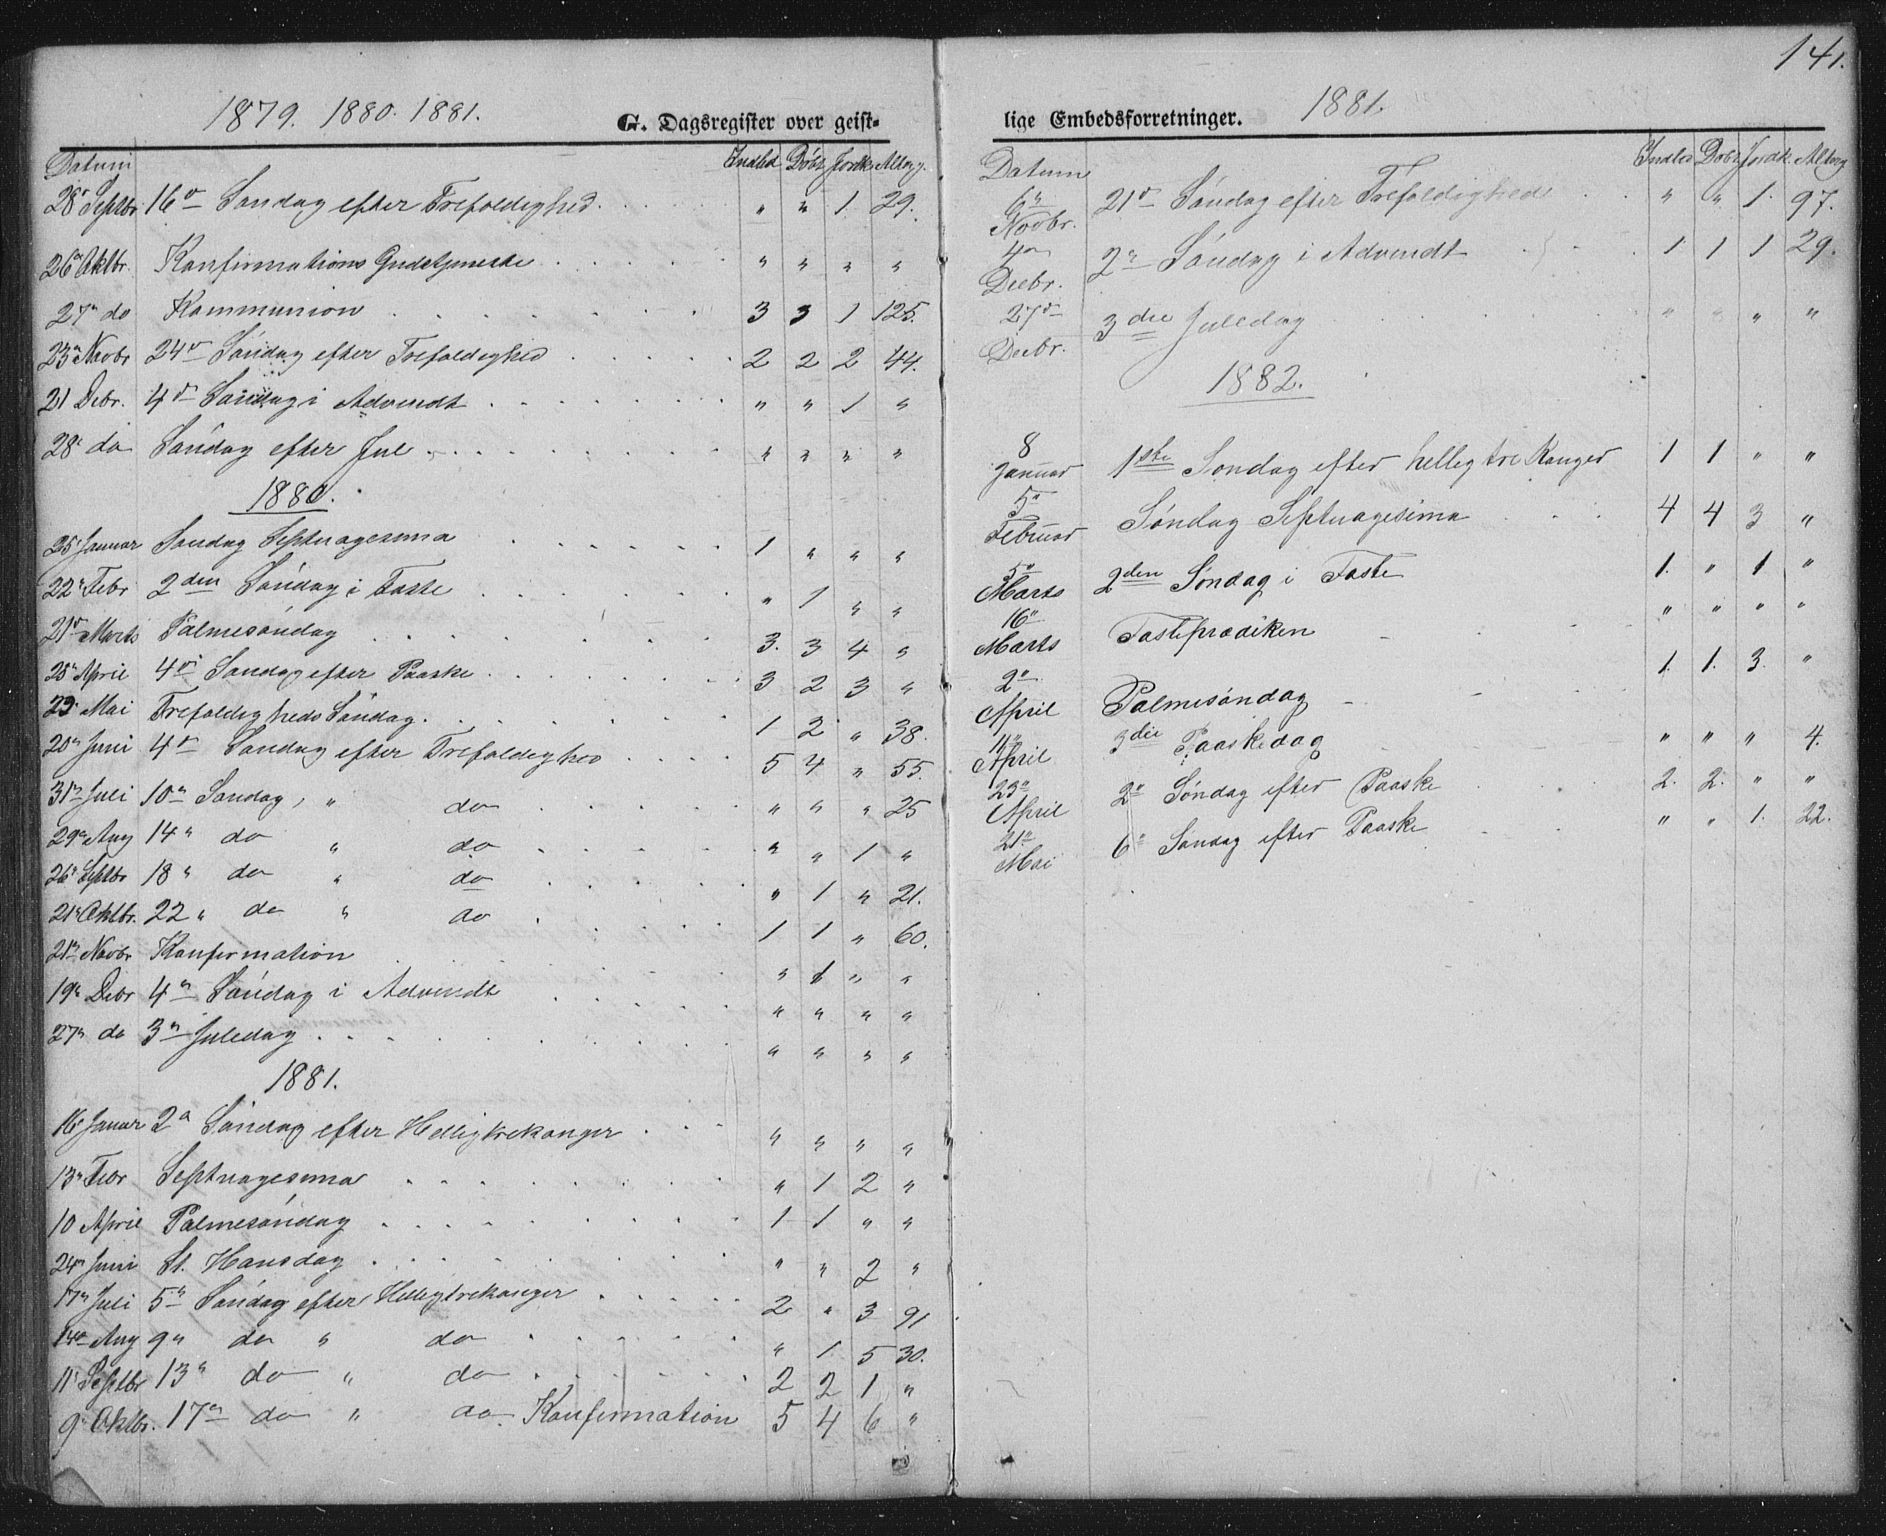 1879. 1880. 1881.
G. Dagsregister over geist-
Datum Indled Döbt Jordk. Alterg.
28" Septbr 16" Søndag efter Trefoldighed. " " 1 29.
26" Oktbr. Konfirmations Gudstjeneste " " " "
27" do Kommunion 3 3 1 125.
23" Novbr 24" Søndag efter Trefoldighed 2 2 2 44.
21 Debr. 4" Søndag i Advendt " " 1 "
28" do Søndag efter Jul " " " "
1880.
25" Januar Søndag Septuagesima 1 " " "
22" Febr 2den Søndag i Faste " 1 " "
21" Marts Palmesøndag 3. 3 4 "
25" April 4" Søndag efter Paaske 3 2 3 "
23" Mai Trefoldigheds Søndag. 1 2 " 38.
20" Juni 4" Søndag efter Trefoldighed 5 4 " 55.
31" Juli 10" Søndag " do " " " 25
29" Aug 14" do " do " " 1 "
26" Septbr 18" do " do " 1 " 21.
21" Oktbr. 22" do " do 1 1 " 60.
21" Novbr Konfirmation " 1 " "
19" Debr 4" Søndag i Advendt " " " "
27" do 3" Juledag " " " "
1881.
16" Januar 2" Søndag efter Helligtrekonger " " " "
13" Febr Septuagesima " 1 2 "
10 April Palmesøndag 1 1 " "
24" Juni St. Hansdag " " 2 "
17" Juli 5" Søndag efter Helligtrekonger 2 " 3 91
14" Aug 9" do " do " 1 5 30.
11" Septbr 13" do " do 2 2 1 "
9" Oktbr. 17" do " do Konfirmation 5 4 6 "
141.
lige Embedsforretninger. 1881.
Datum Indled Döbt Jordk. Alterg
6" Novbr. 21" Søndag efter Trefoldighed " " 1. 97.
4" Decbr. 2" Søndag i Advendt 1. 1 1 29.
27" Decbr. 3die Juledag " " " "
1882.
8 Januar 1ste Søndag efter hellig tre Konger 1 1 " "
5" Februar Søndag Septuagesima 4 4 3 "
5" Marts 2den Søndag i Faste 1. " 1 "
16" Marts Fasteprædiken " " " "
2" April Palmesøndag 1. 1. 3. "
11" April 3die Paaskedag " " " 4.
23" April 2" Søndag efter Paaske 2. 2. " "
21" Mai 6" Søndag efter Paaske " " 1. 22.